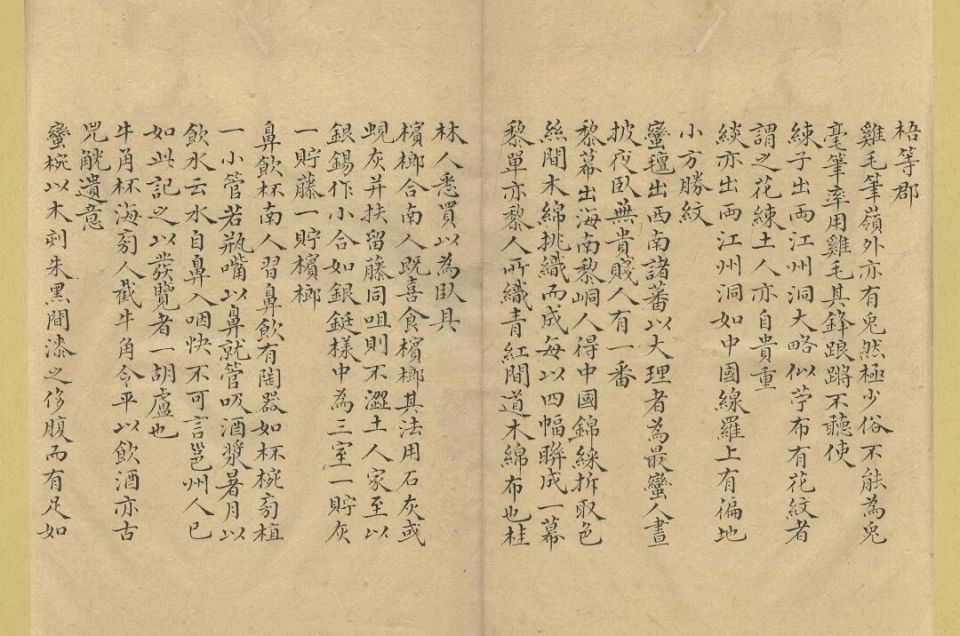 梧等郡
雞毛筆嶺外亦有兎然極少俗不能為兎
毫筆率用雞毛其鋒踉蹡不聽使
綀子出兩江州洞大略似苧布有花紋者
謂之花綀土人亦自貴重
緂亦出兩江州洞如中國線羅上有徧地
小方勝紋
蠻氊出西南諸蕃以大理者為最蠻人晝
披夜臥無貴賤人有一番
黎幕出海南黎峒人得中國錦綵拆取色
絲間木綿挑織而成每以四幅聯成一幕
黎單亦黎人所織青紅間道木綿布也桂
林人悉買以為臥具
檳榔合南人既喜食檳榔其法用石灰或
蜆灰并扶留藤同咀則不澀土人家至以
銀錫作小合如銀鋌樣中為三室一貯灰
一貯藤一貯檳榔
鼻飲杯南人習鼻飲有陶器如杯椀旁植
一小管若瓶嘴以鼻就管吸酒漿暑月以
飲水云水自鼻入咽快不可言邕州人已
如此記之以發覽者一胡盧也
牛角杯海旁人截牛角令平以飲酒亦古
兕觥遺意
蠻椀以木刻朱黑間漆之侈腹而有足如